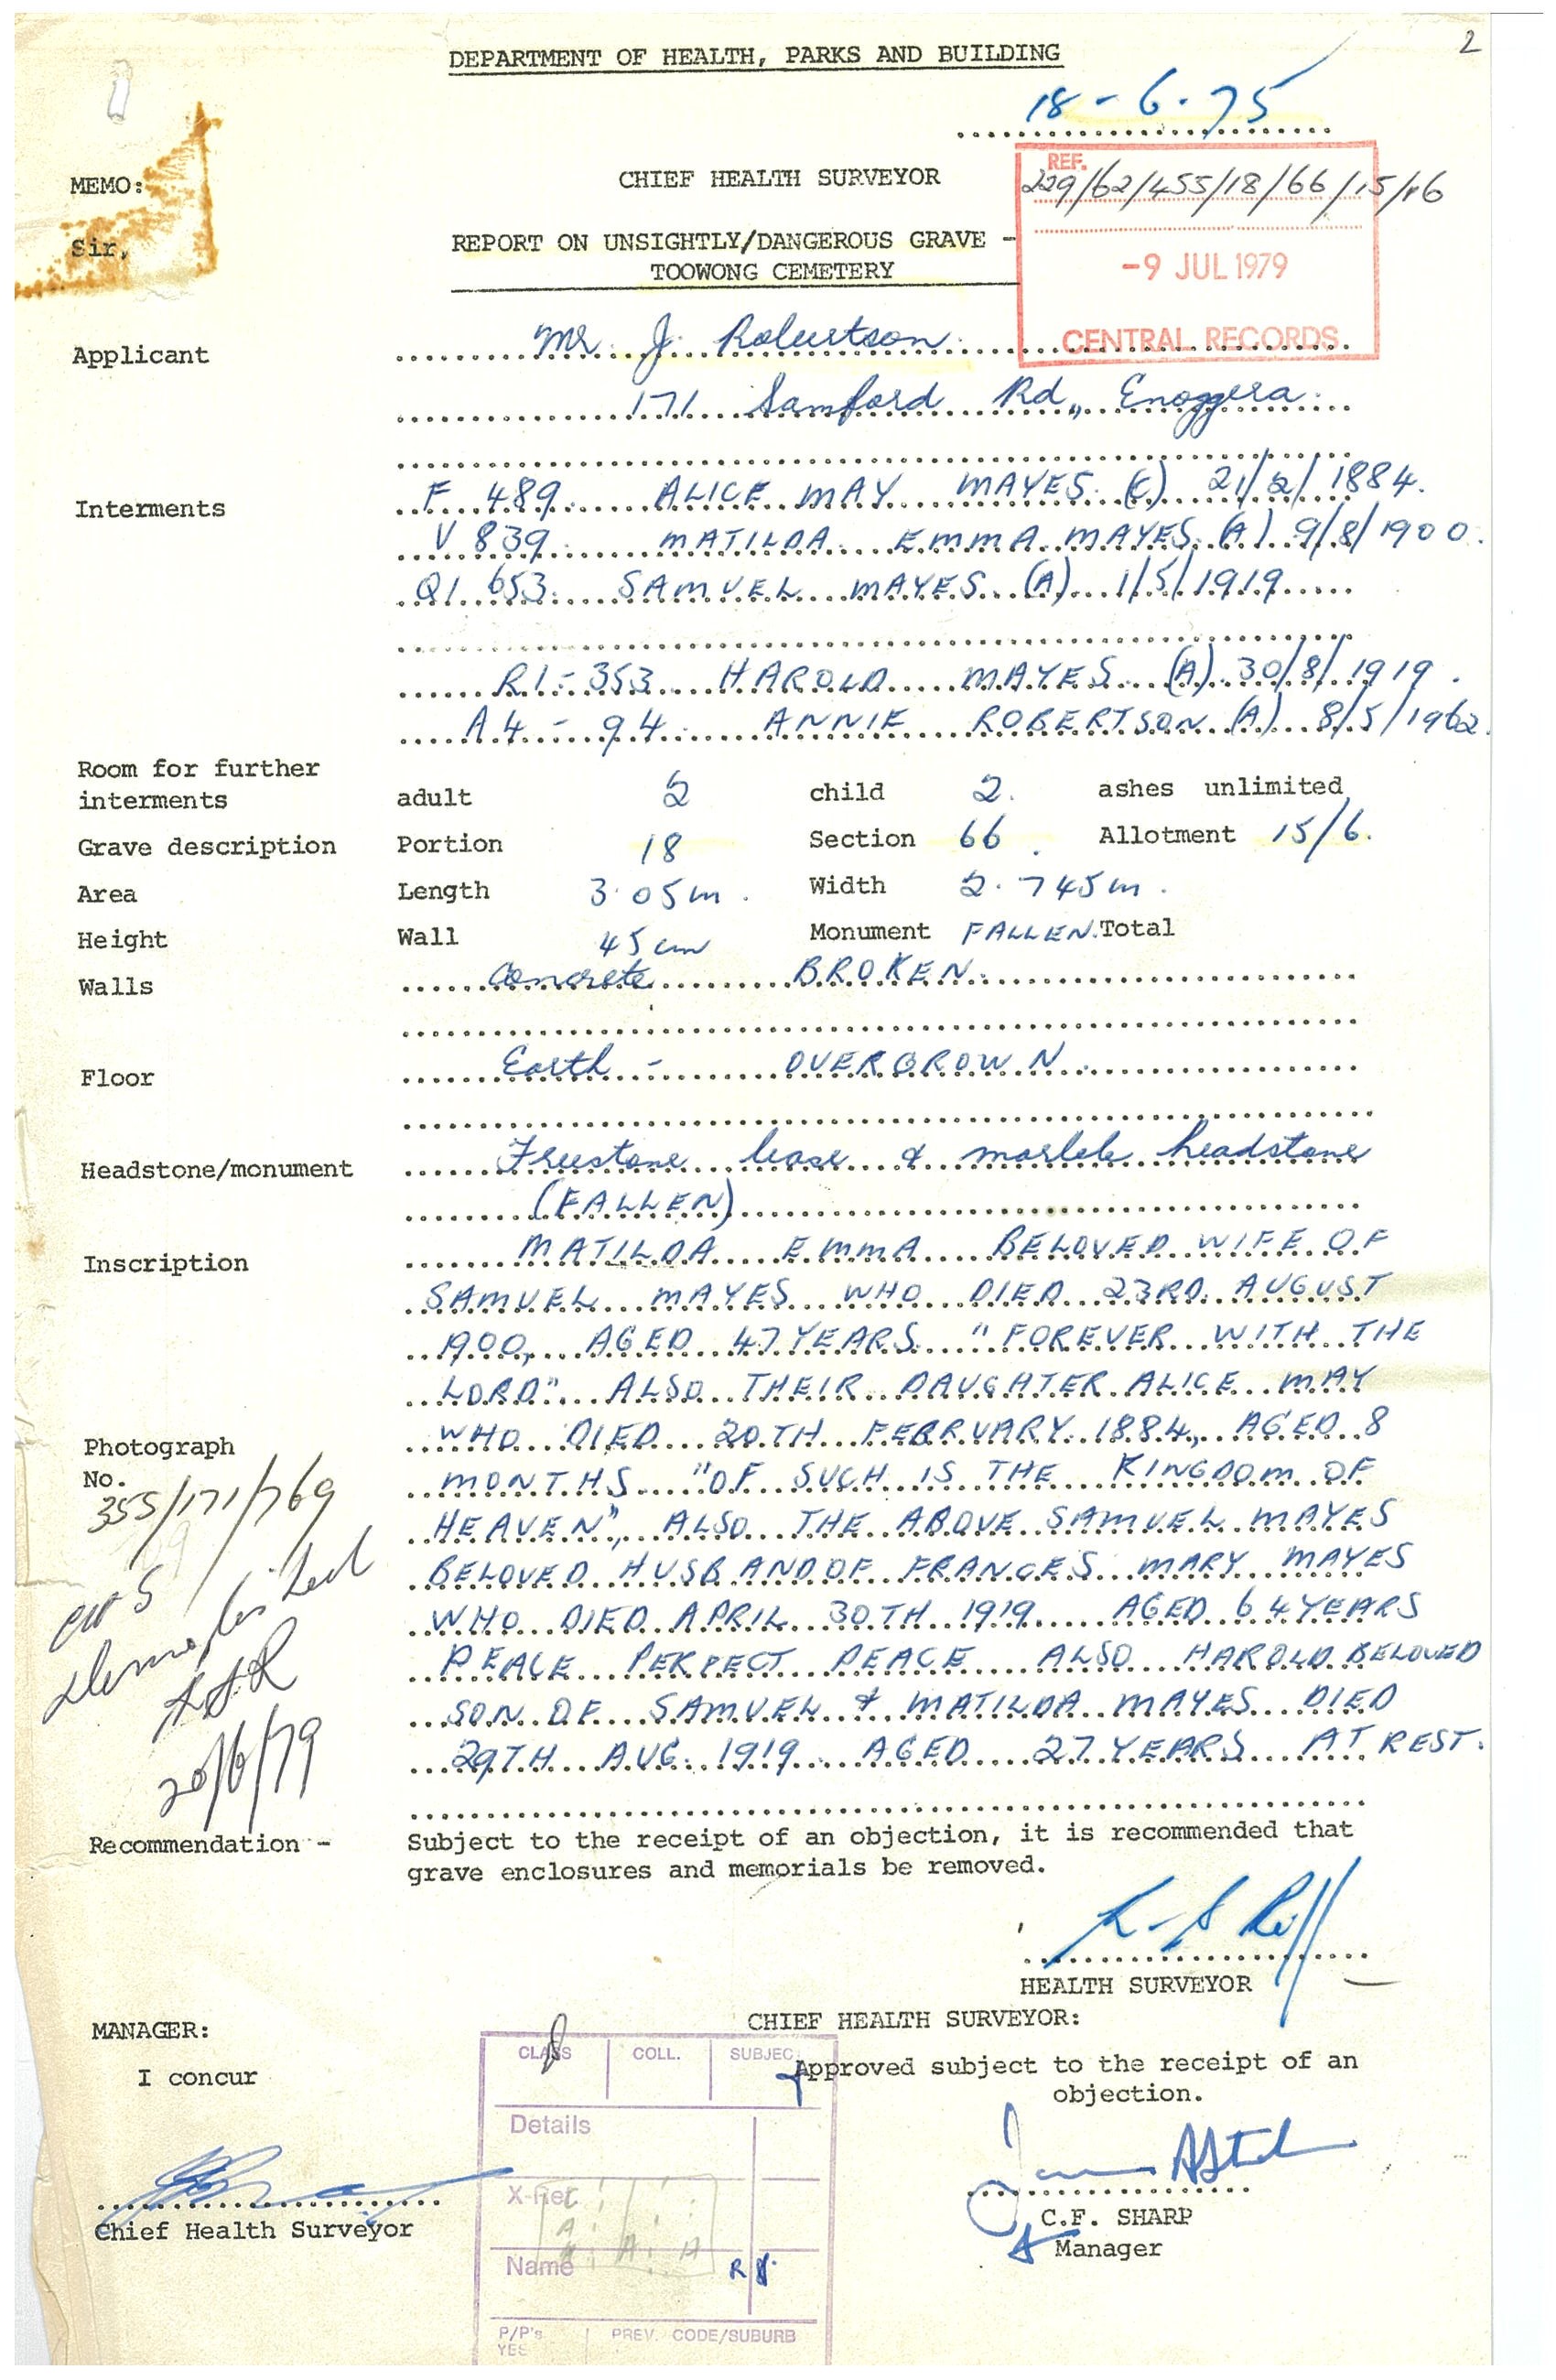 2
DEPARTMENT OF HEALTH, PARKS AND BUILDING
18-6-75
MEMO:
CHIEF HEALTH SURVEYOR
REF.
229/62/455/18/66/15/16
Sir,
REPORT ON UNSIGHTLY/DANGEROUS GRAVE -
TOOWONG CEMETERY
-9 JUL 1979
CENTRAL RECORDS
Applicant Mr. J. Robertson
171 Samford Rd., Enoggera.
Interments F 489. ALICE MAY MAYES (C) 21/2/1884.
V 839 MATILDA EMMA MAYES (A) 9/8/1900.
Q1 653 SAMUEL MAYES (A) 1/5/1919
R1-353 HAROLD MAYES (A) 30/8/1919.
A4-94 ANNIE ROBERTSON (A) 8/5/1962.
Room for further
interments adult 2 child 2. ashes unlimited
Grave description Portion 18 Section 66. Allotment 15/6.
Area Length 3.05m. Width 2.745m.
Height Wall 45cm Monument FALLEN. Total
Walls Concrete BROKEN.
Floor Earth - OVERGROWN.
Headstone/monument Freestone base & marble headstone
(FALLEN)
Inscription MATILDA EMMA BELOVED WIFE OF
SAMUEL MAYES WHO DIED 23RD AUGUST
1900, AGED 47 YEARS "FOREVER WITH THE
LORD". ALSO THEIR DAUGHTER ALICE MAY
WHO DIED 20TH FEBRUARY 1884, AGED 8
MONTHS "OF SUCH IS THE KINGDOM OF
HEAVEN", ALSO THE ABOVE SAMUEL MAYES
BELOVED HUSBAND OF FRANCES MARY MAYES
WHO DIED APRIL 30TH 1919 AGED 64 YEARS
PEACE PERFECT PEACE ALSO HAROLD BELOVED
SON OF SAMUEL & MATILDA MAYES DIED
29TH AUG. 1919 AGED 27 YEARS AT REST.
Photograph
No.
355/171/769
20/6/79
Recommendation - Subject to the receipt of an objection, it is recommended that
grave enclosures and memorials be removed.
HEALTH SURVEYOR
MANAGER:
I concur
Chief Health Surveyor
CHIEF HEALTH SURVEYOR:
Approved subject to the receipt of an
objection.
C.F. SHARP
Manager
CLASS COLL. SUBJEC
Details
X-Ref
Name
P/P's
YES
PREV. CODE/SUBURB